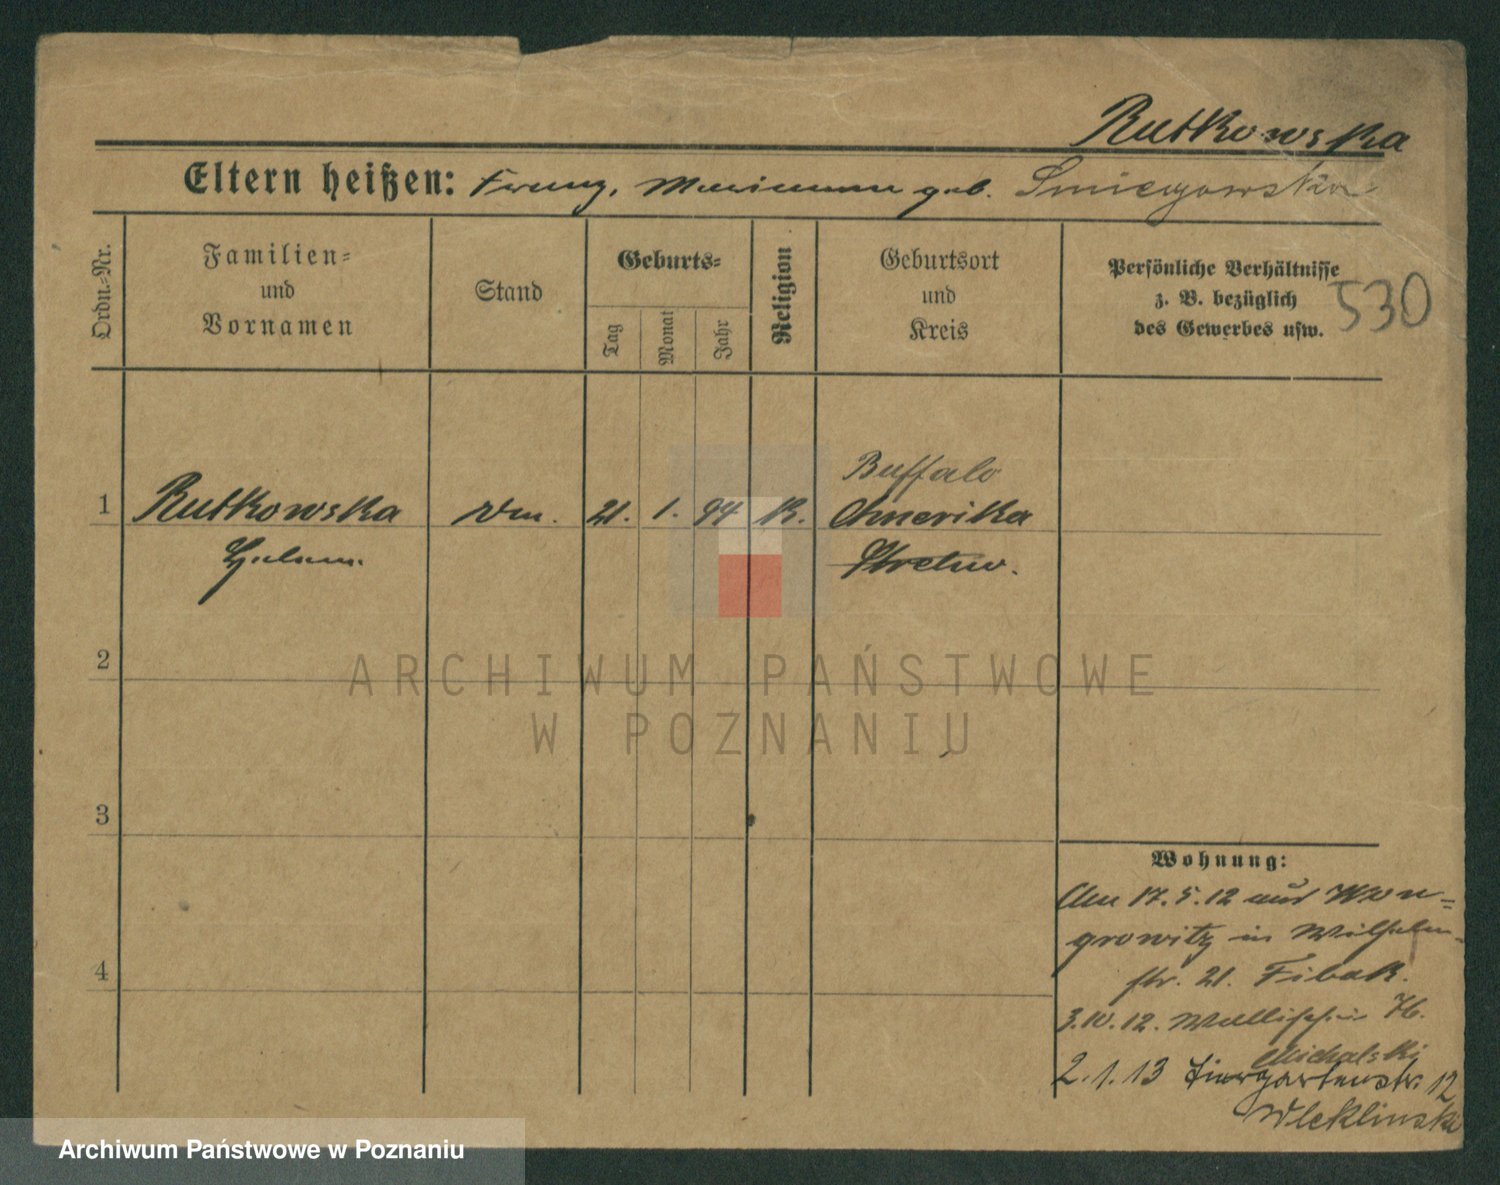 Rutkowska
Eltern heißen: Franz, Marianna geb.
530
Ordn.-Nr.
Familien-
und
Vornamen
Stand
Geburts-
Tag
Monat
Jahr
Religion
Geburtsort
und
Kreis
Persönliche Verhältnisse
z. B. bezüglich
des Gewerbes usw.
Buffalo
1 Rutkowska 21. 1. 94 K. Amerika
Helena.
2
ARCHIWUM PAŃSTWOWE
W POZNANIU
3
Wohnung:
Am 17.5.12 aus Won-
growitz in Wilhelm-
4
str. 21. Fibak.
3.10.12. Wallischei
Michalski
2.1.13 Tiergartenstr. 12
Wleklinski
Archiwum Państwowe w Poznaniu